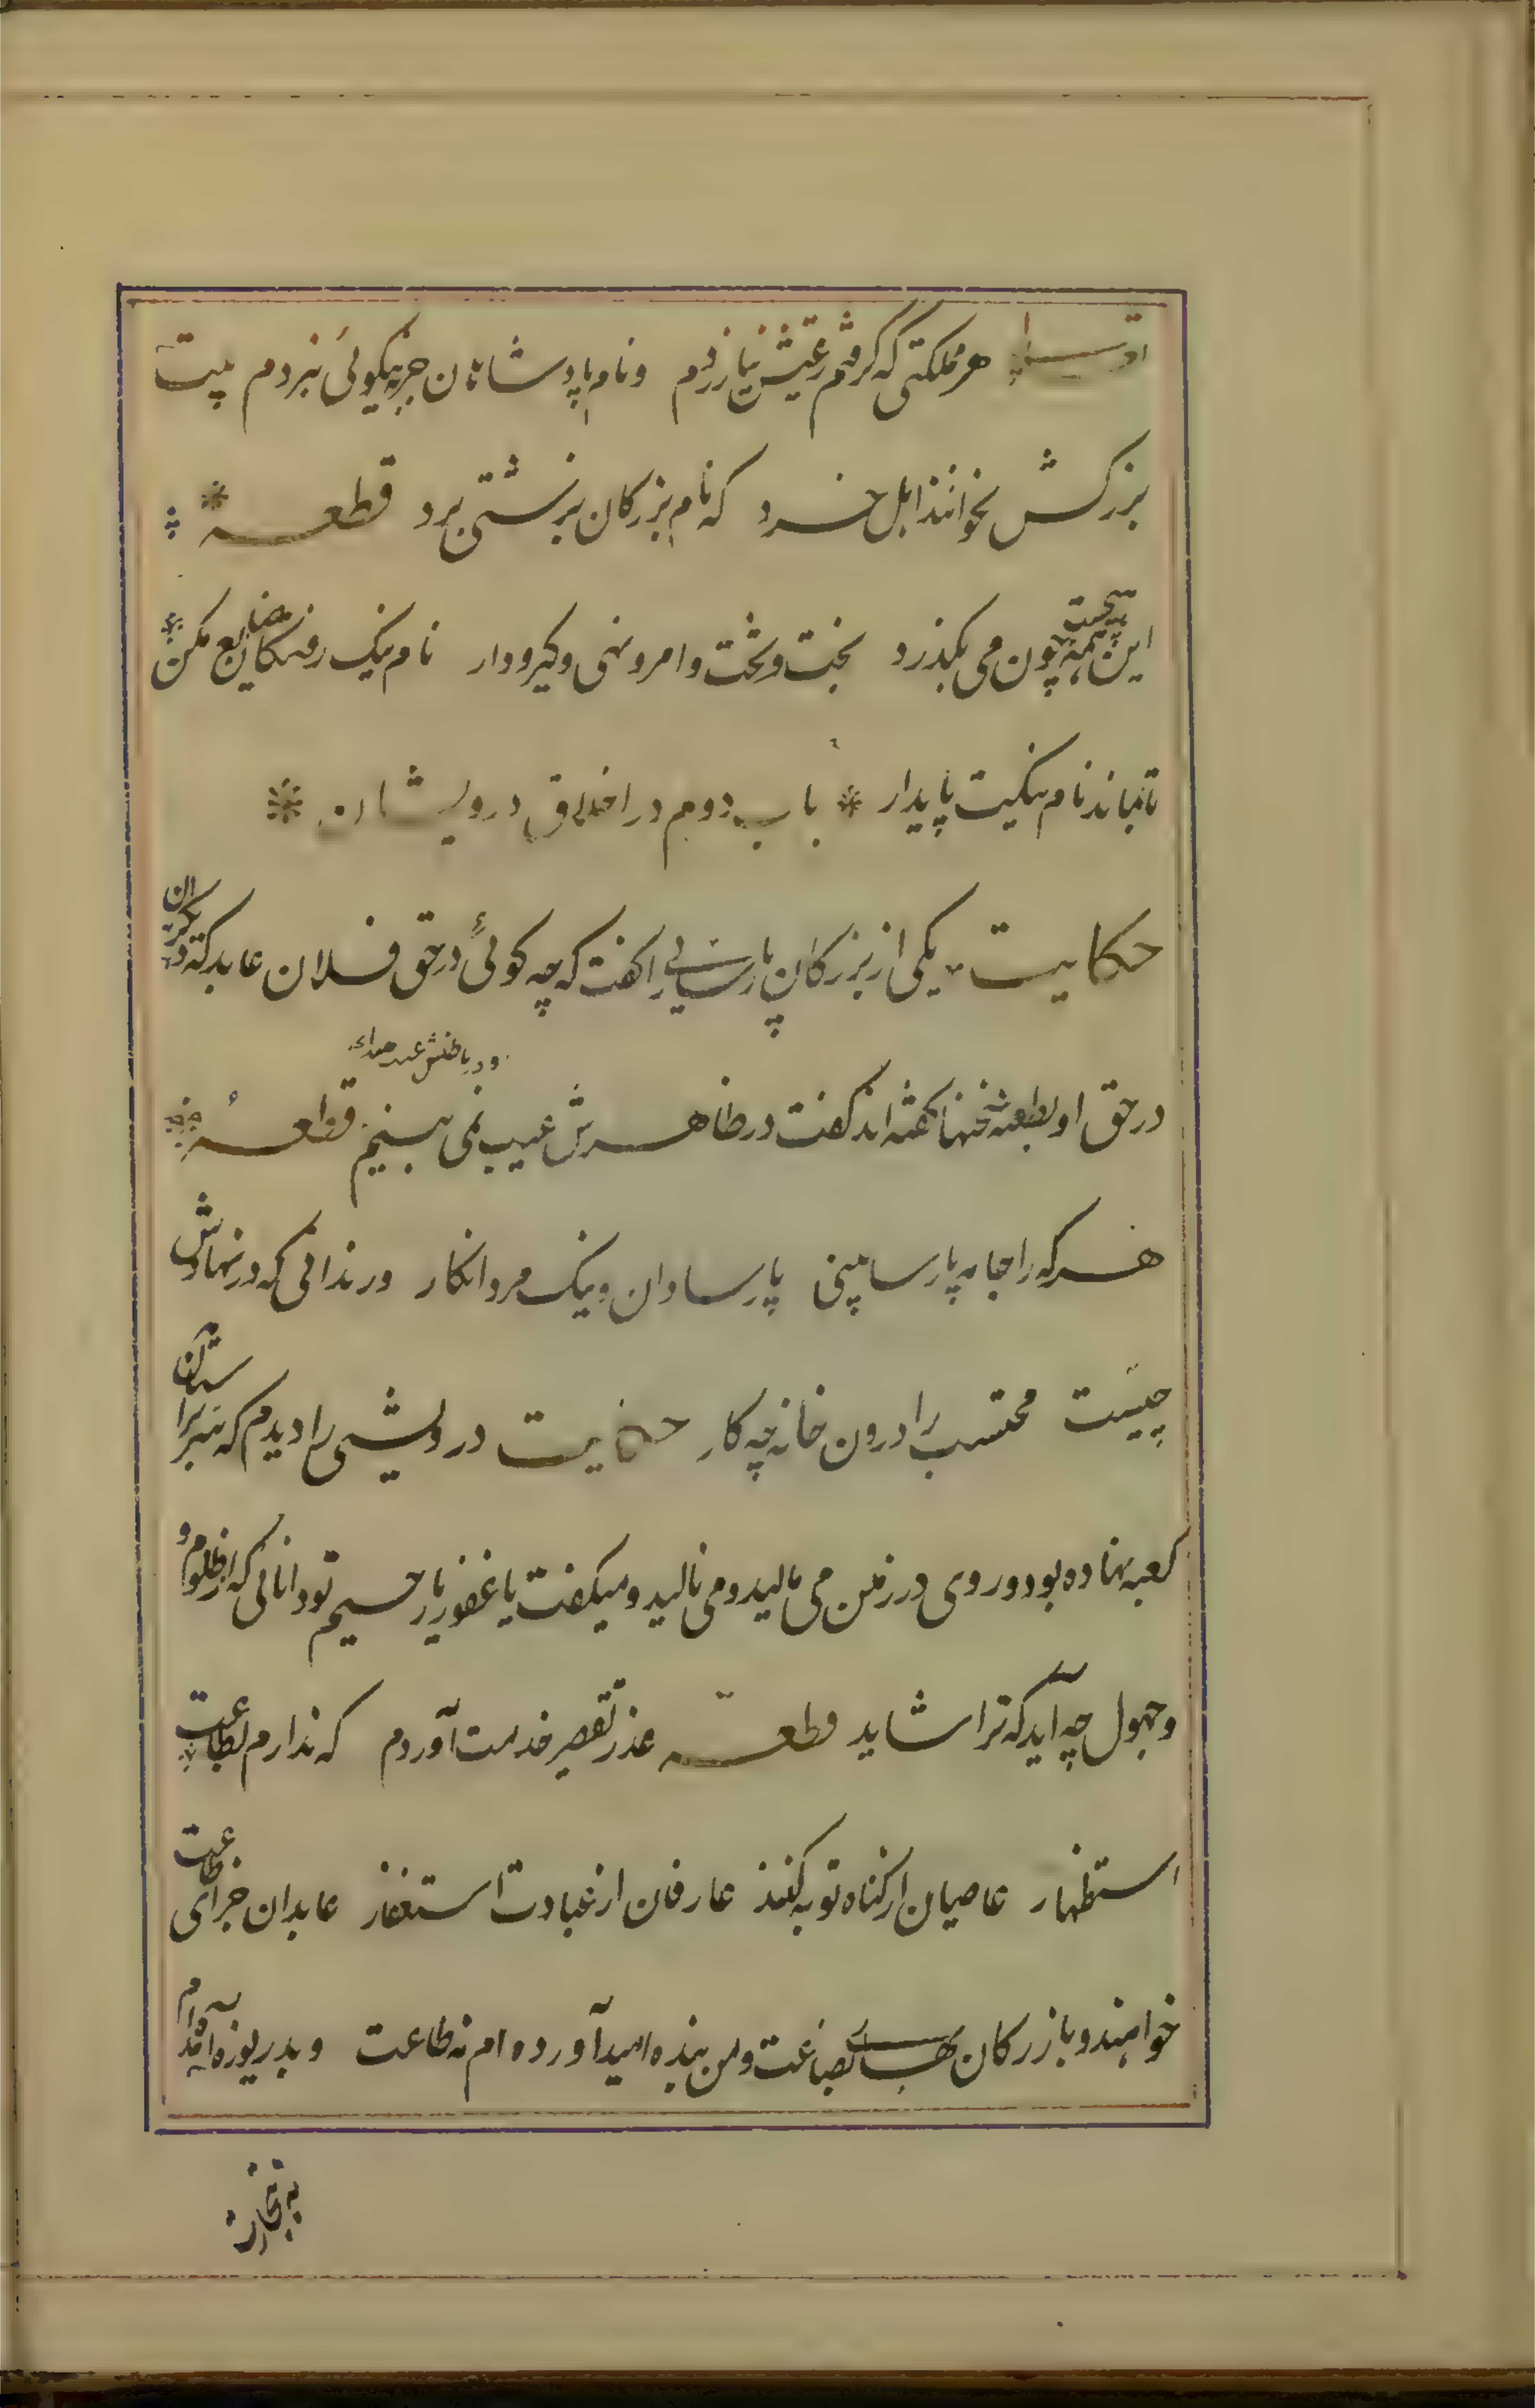 هر مملکتی که گرفتم رعیتش نیازردم و نام پادشاهان جز به نیکوئی نبردم بیت
بزرکش نخوانند اهل خرد که نام بزرکان بزشتی برد قطعه
این همه هیچست چون می بکذرد بخت و تخت و امر و نهی و کیر و دار نام نیک رفتکان ضایع مکن
تا بماند نام نیکت پایدار * باب دوم در اخلاق درویشان *
حکایت یکی از بزرکان پارسایی را کفت که چه کوئی در حق فلان عابد که دیکران
در حق او بطعنه سخنها کفته اند کفت در ظاهرش عیب نمی بینم قطعه
و در باطنش غیب
هر که را جامه پارسا بینی پارسا دان و نیک مرد انکار ور ندانی که در نهادش
چیست محتسب را درون خانه چه کار حکایت درویشی را دیدم که سر بر آستان
کعبه نهاده بود و روی در زمین می مالید و می نالید و میکفت یا غفور یا رحیم تو دانائی که از ظلوم و
و جهول چه آید که ترا شاید قطعه عذر تقصیر خدمت آوردم که ندارم بطاعت
استظهار عاصیان از کناه توبه کنند عارفان از عبادت استغفار عابدان جزای طاعت
خواهند و بازرکان بهای بضاعت و من بنده امید آورده ام نه طاعت و بدریوزه آمده ام
نه بتجارت